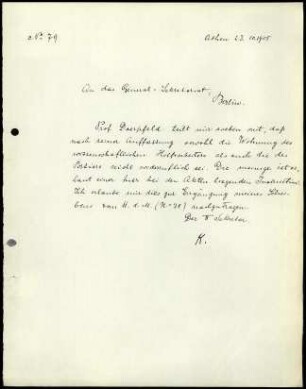 No 79
Athen 23.10.1905
An das General-Sekretariat
Berlin.
Prof. Doerpfeld teilt mir soeben mit, daß
nach seiner Auffassung sowohl die Wohnung des
wissenschaftlichen Hilfsarbeiters als auch die des
nicht sei. Die meinige ist
laut einer hier bei den Akten liegenden
Ich erlaube mir dies zur Ergänzung meines Schrei-
bens vom (No 78) nachzutragen.
Der II Sekretar
K.